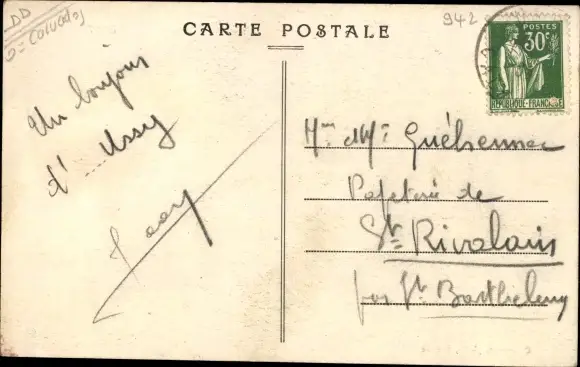 DD
= Calvados
CARTE POSTALE
942
POSTES
30c
REPUBLIQUE-FRANÇAISE
Un bonjour
d'Ussy
Mme et Mr Guéhennec
Papeterie de
St Rivalain
par St Barthelemy